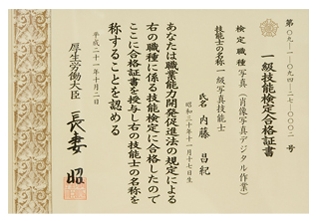 第〇九-一-〇九四-二七-〇〇〇二号
一級技能検定合格証書
検定職種 写真(肖像写真デジタル作業)
技能士の名称 一級写真技能士
氏名 内藤昌紀
昭和三十年十一月十七日生
あなたは職業能力開発促進法の規定による
右の職種に係る技能検定に合格したので
ここに合格証書を授与し右の技能士の名称を
称することを認める
平成二十一年十月二日
厚生労働大臣 長妻昭